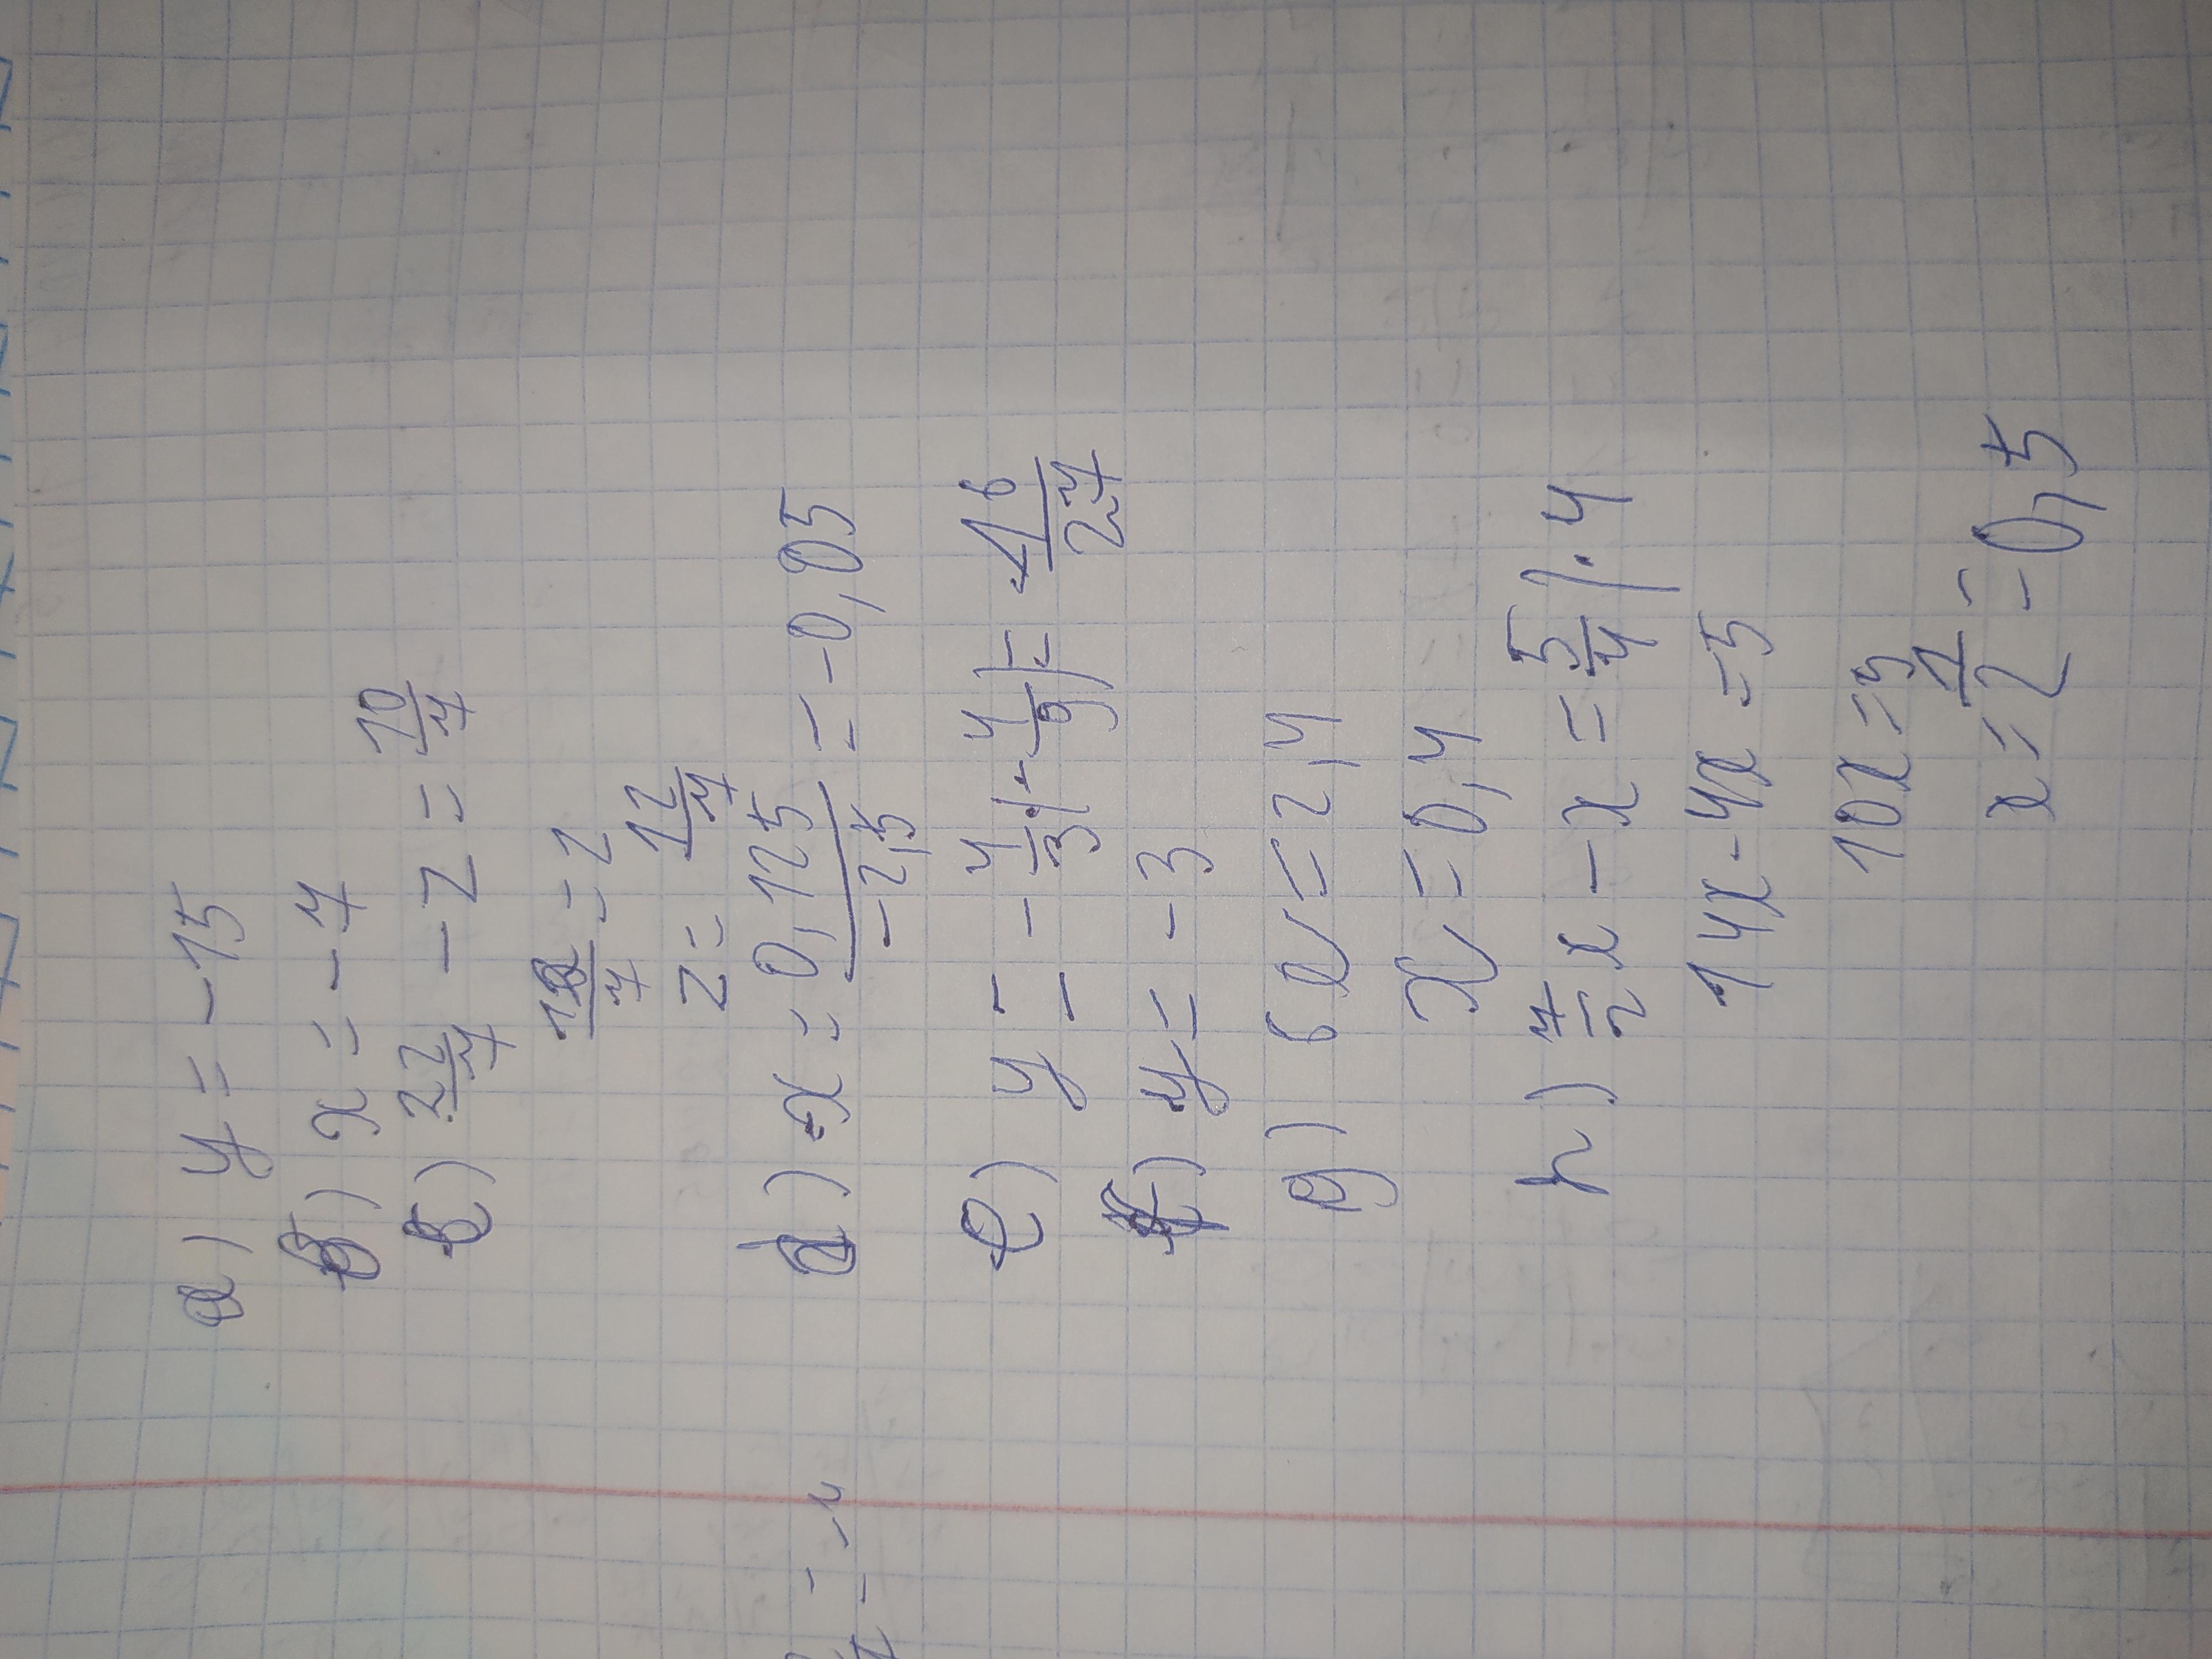 a) y = -15
b) x = -7
c) 22/7 - z = 10/7
12/7 = z
z = 12/7
d) x = 0,125/-2,5 = -0,05
e) y = -4/3 · (-4/9) = 16/27
f) y = -3
g) 6x = 2,4
x = 0,4
h) 7/2 x - x = 5/4 | · 4
14x - 4x = 5
10x = 5
x = 1/2 = 0,5